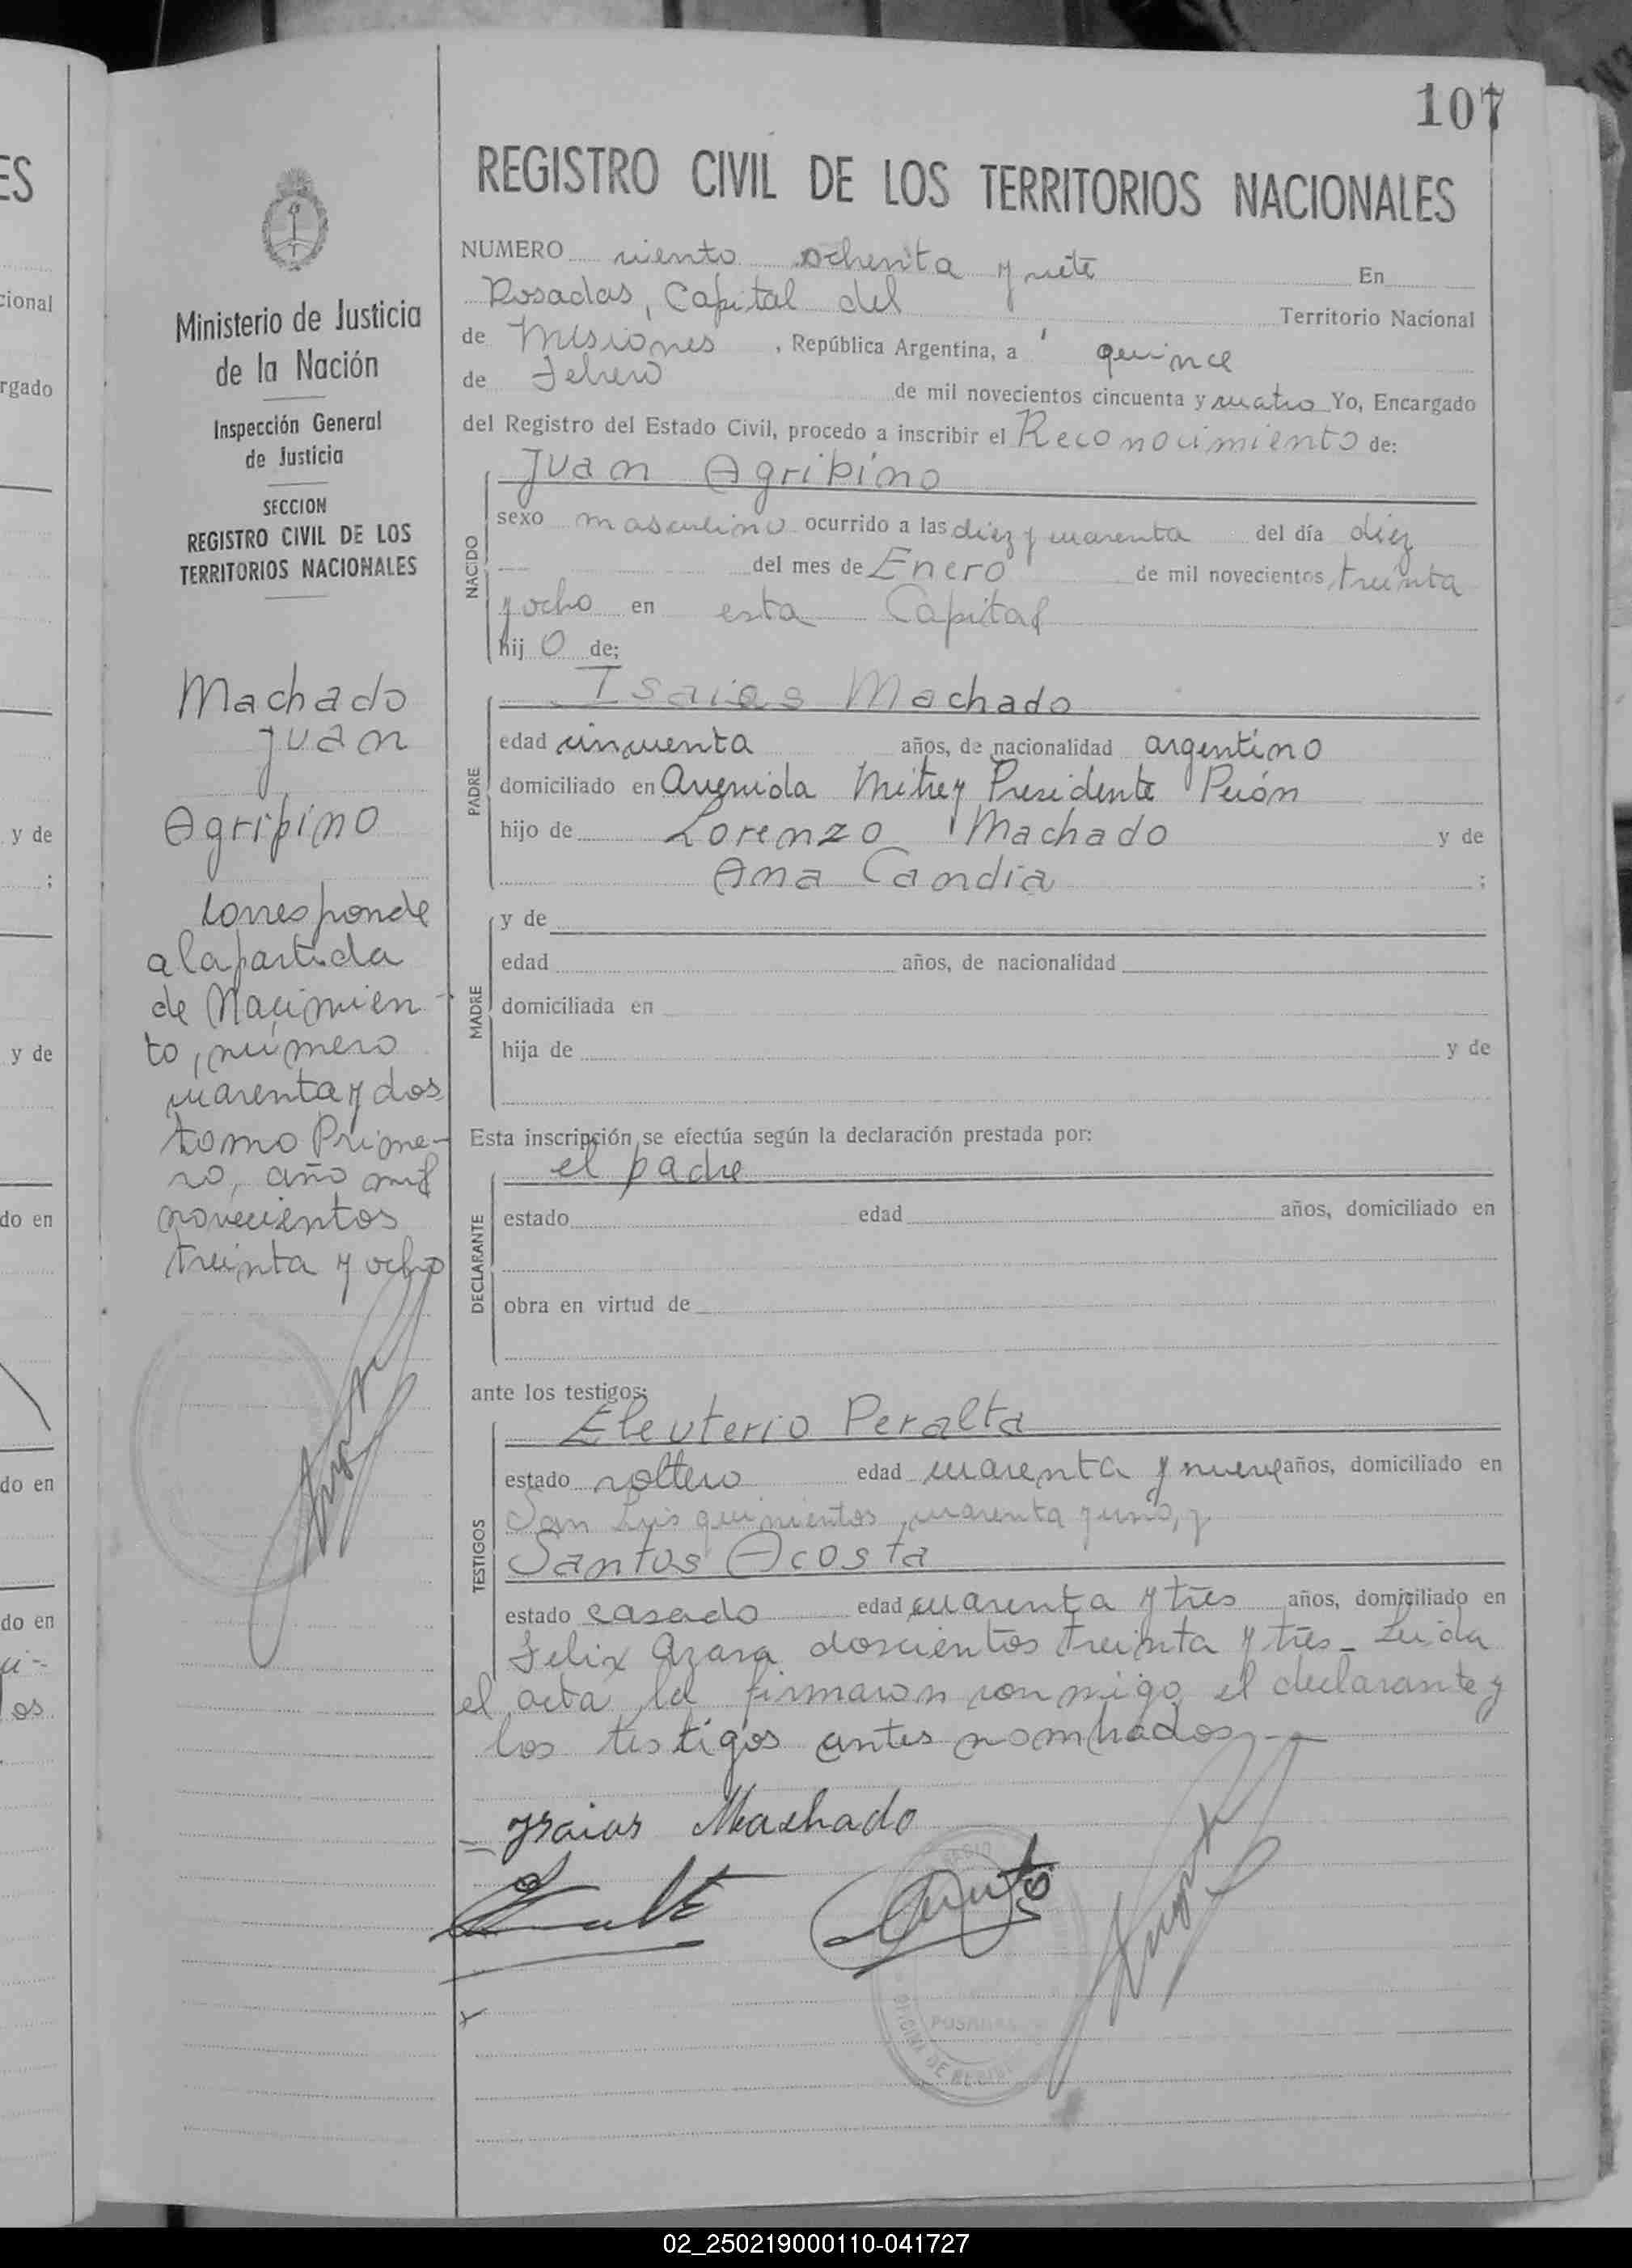 107
REGISTRO CIVIL DE LOS TERRITORIOS NACIONALES
Ministerio de Justicia
de la Nación
Inspección General
de Justicia
SECCION
REGISTRO CIVIL DE LOS
TERRITORIOS NACIONALES
Machado
Juan
Agripino
Corresponde
a la partida
de Nacimien-
to, número
cuarenta y dos
tomo Prime-
ro, año mil
novecientos
treinta y ocho
NUMERO ciento ochenta y siete En
Posadas, Capital del Territorio Nacional
de Misiones, República Argentina, a quince
de Febrero de mil novecientos cincuenta y cuatro Yo, Encargado
del Registro del Estado Civil, procedo a inscribir el Reconocimiento de:
NACIDO
Juan Agripino
sexo masculino ocurrido a las diez y cuarenta del día diez
del mes de Enero de mil novecientos treinta
y ocho en esta Capital
hijo de:
PADRE
Isaias Machado
edad cincuenta años, de nacionalidad argentino
domiciliado en Avenida Mitre y Presidente Perón
hijo de Lorenzo Machado y de
Ana Candia ;
MADRE
y de
edad años, de nacionalidad
domiciliada en
hija de y de
Esta inscripción se efectúa según la declaración prestada por:
DECLARANTE
el padre
estado edad años, domiciliado en
obra en virtud de
ante los testigos:
TESTIGOS
Eleuterio Peralta
estado soltero edad cuarenta y nueve años, domiciliado en
San Luis quinientos cuarenta y uno, y
Santos Acosta
estado casado edad cuarenta y tres años, domiciliado en
Felix Azara doscientos treinta y tres_ Leida
el acta la firmaron conmigo el declarante y
los testigos antes nombrados
Ysaias Machado
POSADAS
OFICINA DE
ES
cional
rgado
y de
;
y de
do en
do en
do en
os
02_250219000110-041727